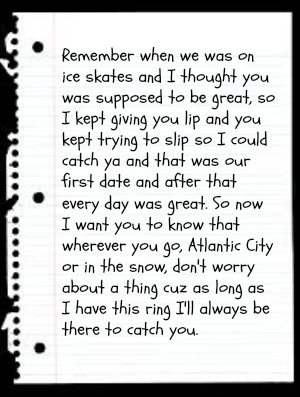 Remember when we was on
ice skates and I thought you
was supposed to be great, so
I kept giving you lip and you
kept trying to slip so I could
catch ya and that was our
first date and after that
every day was great. So now
I want you to know that
wherever you go, Atlantic City
or in the snow, don't worry
about a thing cuz as long as
I have this ring I'll always be
there to catch you.